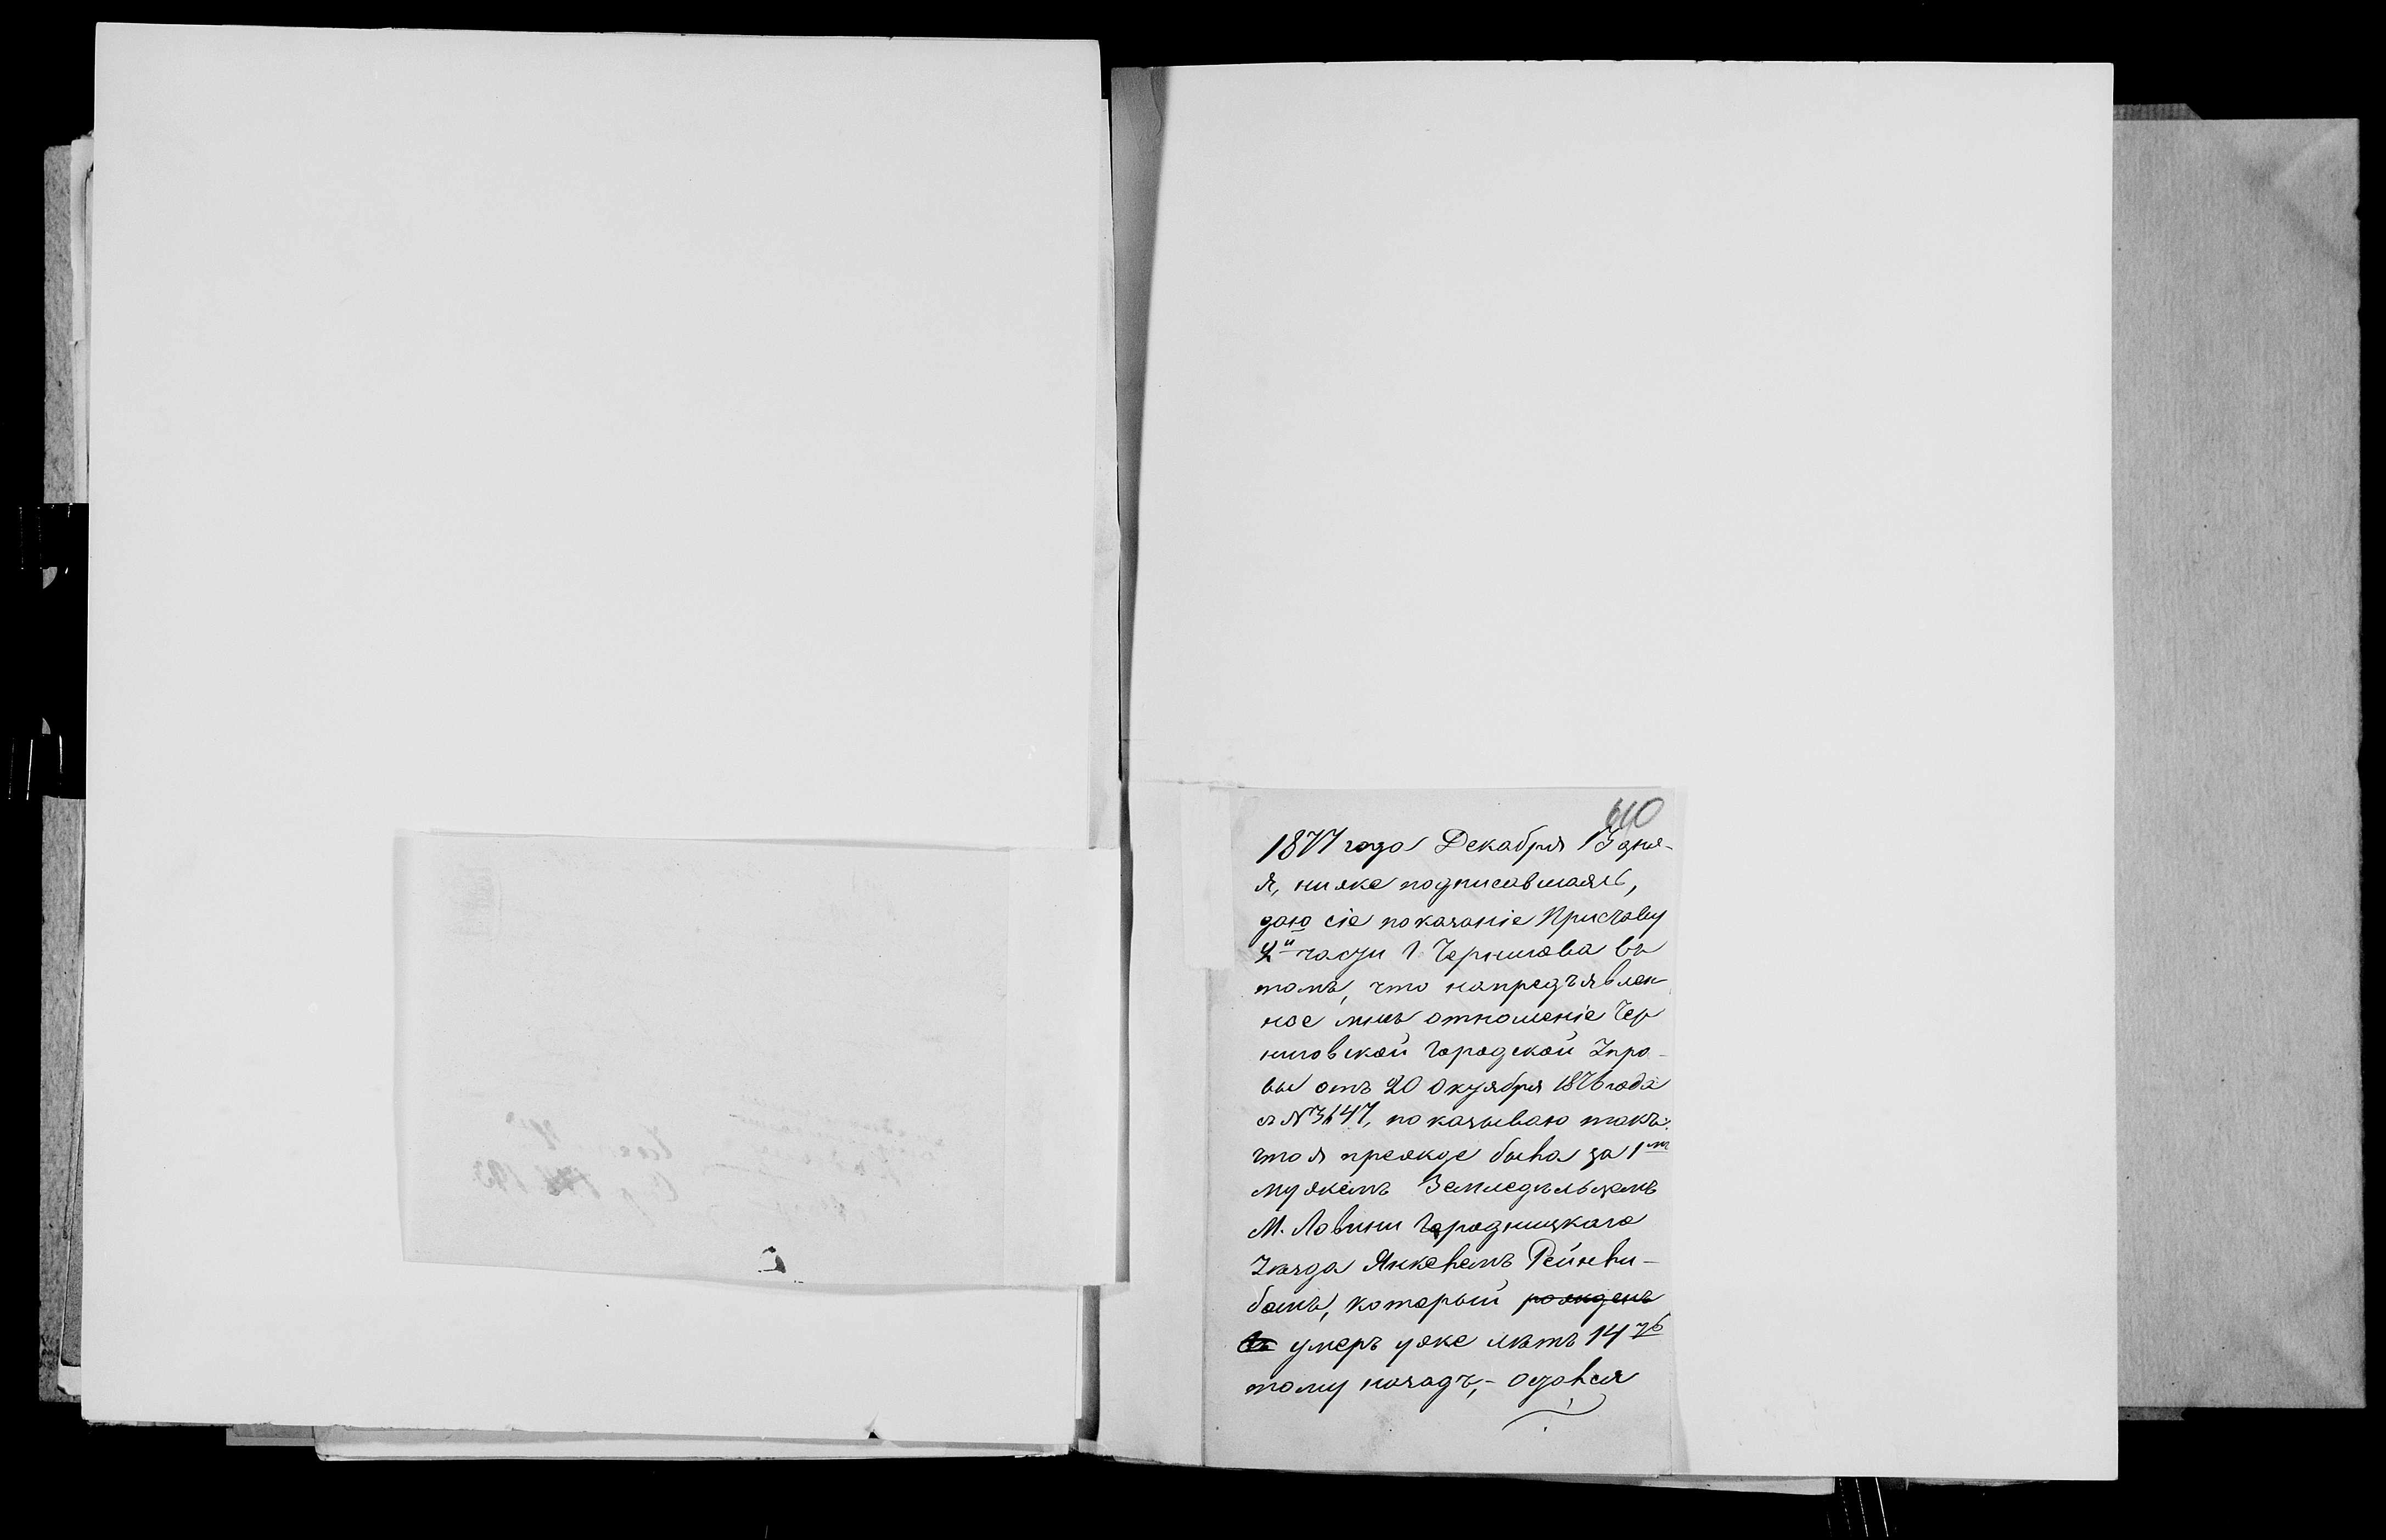 610
1877 года Декабря 13 дня
Я, ниже подписавшаясь,
даю сіе показаніе Приставу
2й части г. Чернигова въ
томъ, что напредъявлен-
ное мнѣ отношеніе Чер
ниговской Городской Упра-
вы отъ 20 Октября 1876 года
за №3647, показываю такъ:
что я прежде была за 1мъ
мужемъ Земледѣльцемъ
М. Ловини Городницкаго
Уѣзда Янкелемъ Рейхли-
бомъ, который рожденъ
въ умеръ уже лѣтъ 14ть
тому назадъ,- остался